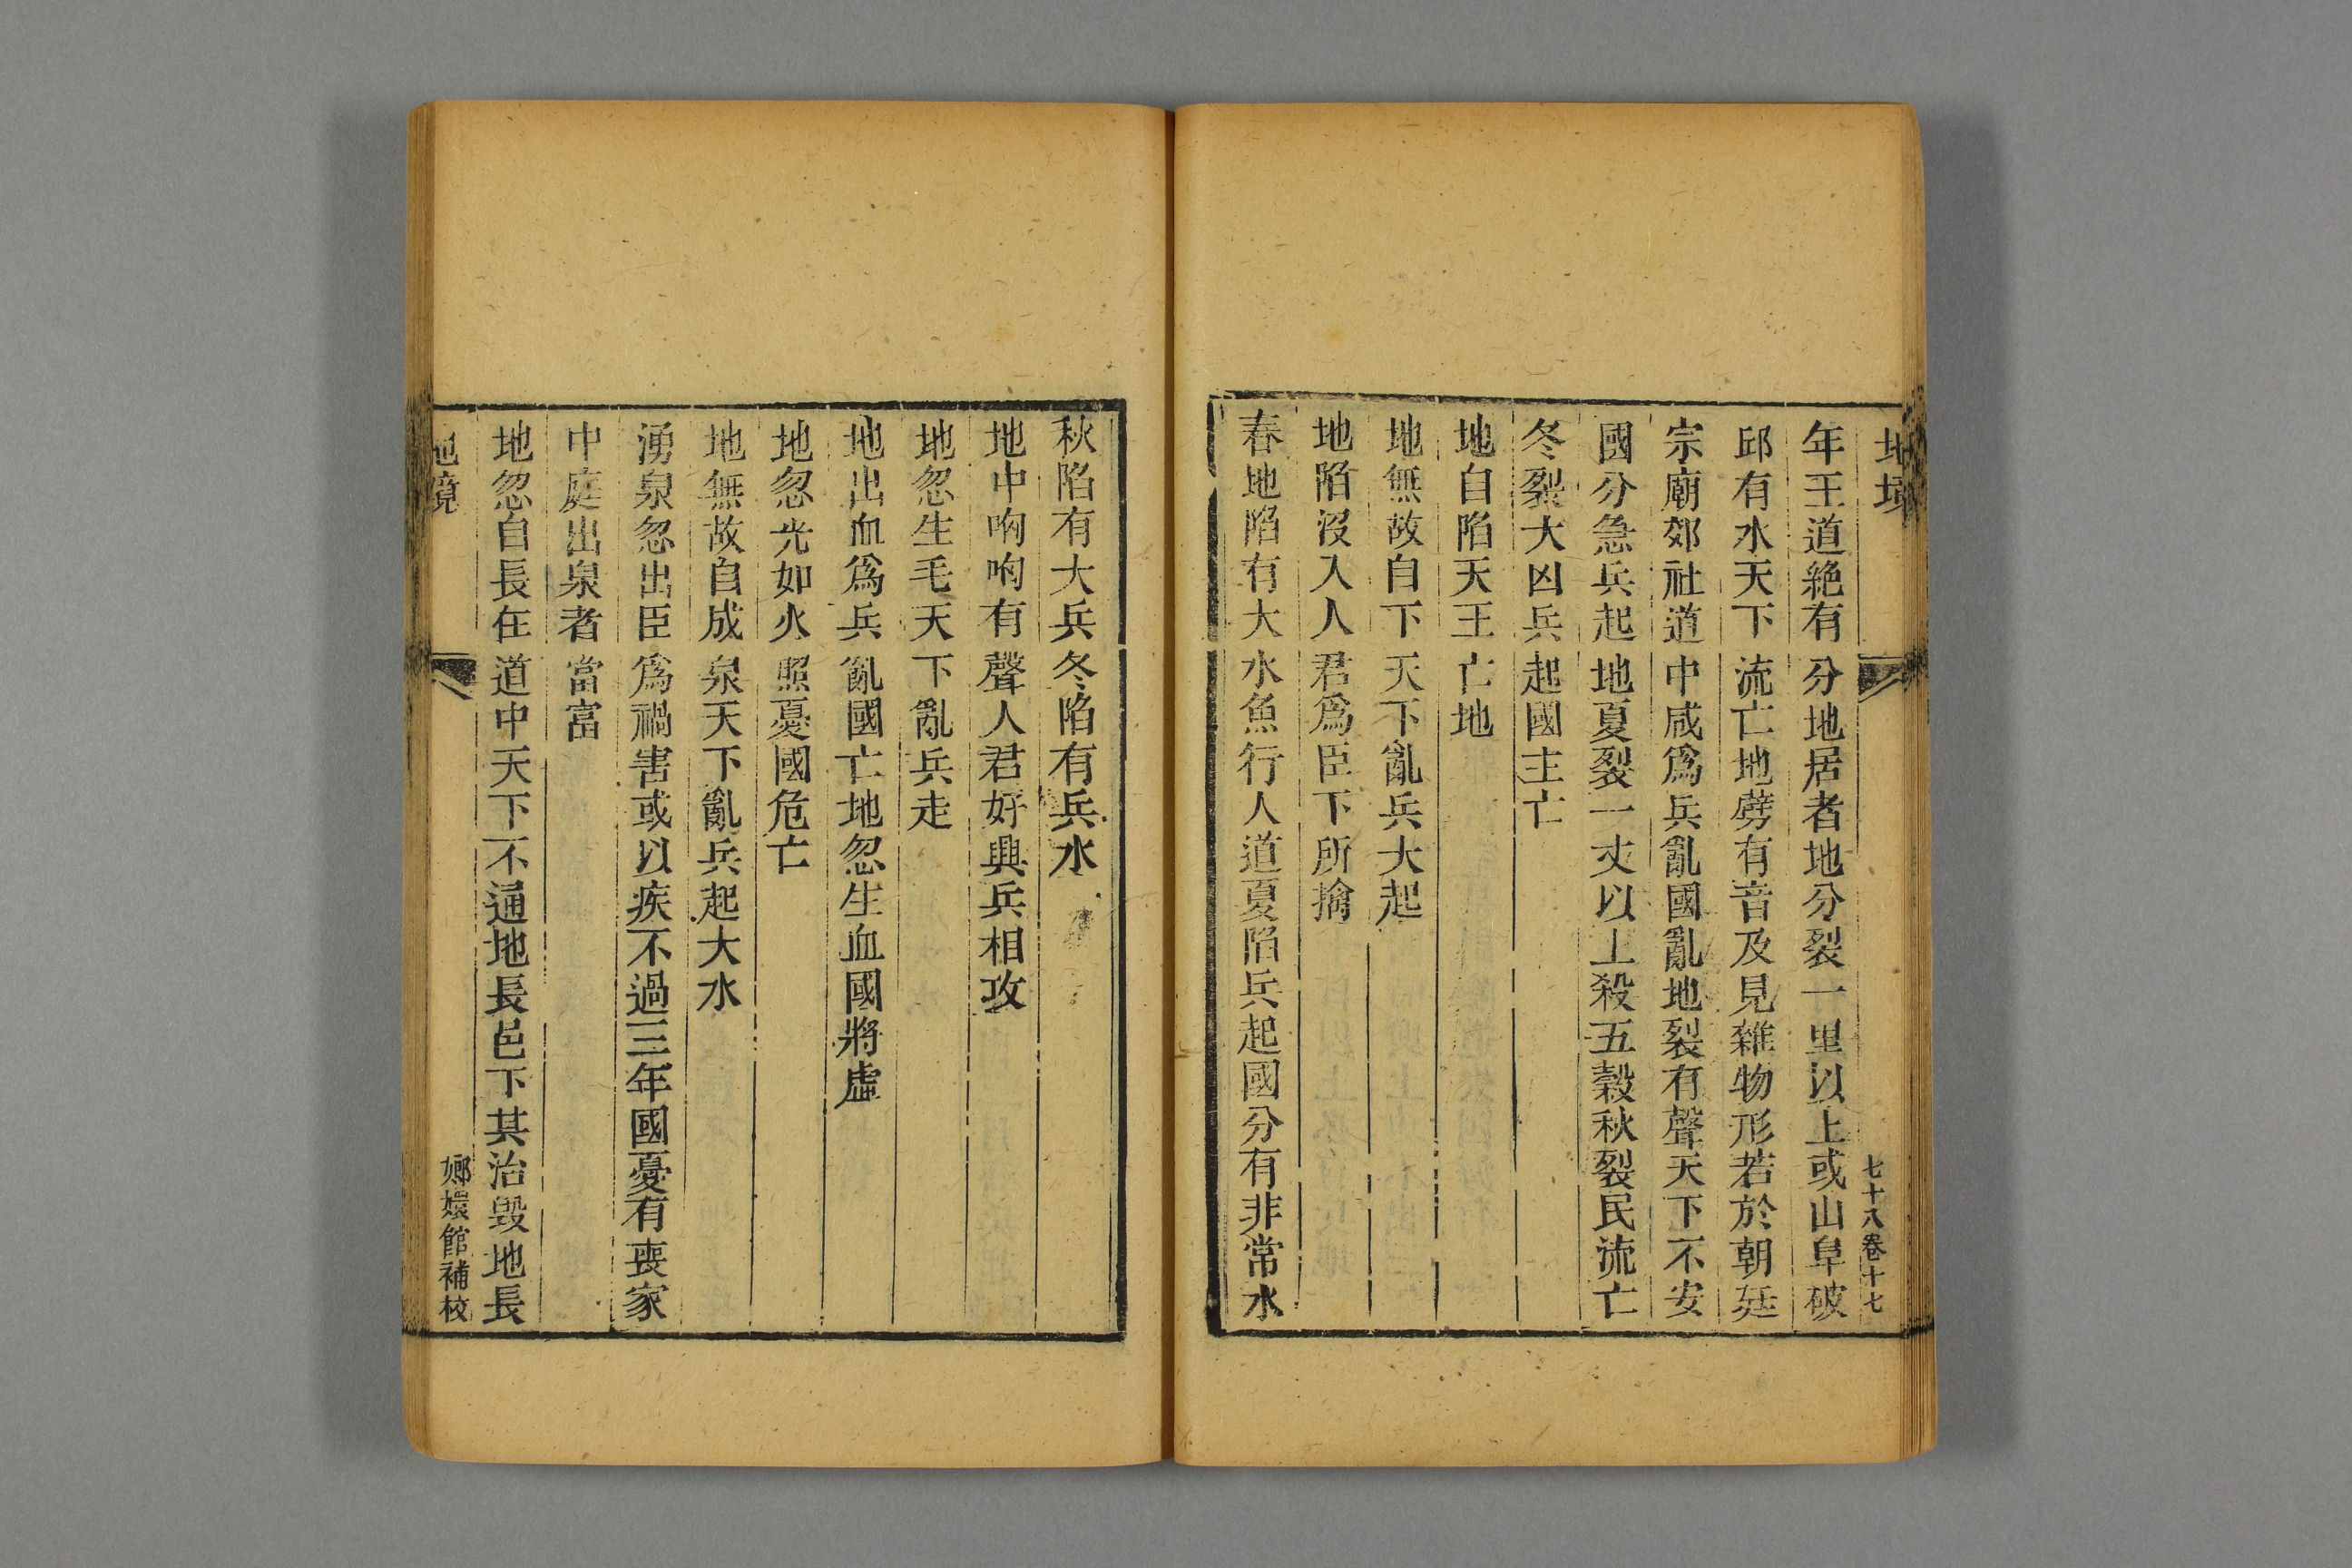 地境
七十八卷十七
年王道絕有分地居者地分裂一里以上或山阜破
邱有水天下流亡地劈有音及見雜物形若於朝廷
宗廟郊社道中咸爲兵亂國亂地裂有聲天下不安
國分急兵起地夏裂一丈以上殺五穀秋裂民流亡
冬裂大凶兵起國主亡
地自陷天王亡地
地無故自下天下亂兵大起
地陷沒入人君爲臣下所擒
春地陷有大水魚行人道夏陷兵起國分有非常水
秋陷有大兵冬陷有兵水
地中呴呴有聲人君好興兵相攻
地忽生毛天下亂兵走
地出血爲兵亂國亡地忽生血國將虛
地忽光如火照憂國危亡
地無故自成泉天下亂兵起大水
湧泉忽出臣爲禍害或以疾不過三年國憂有喪家
中庭出泉者當富
地忽自長在道中天下不通地長邑下其治毀地長
地境
嫏嬛館補校